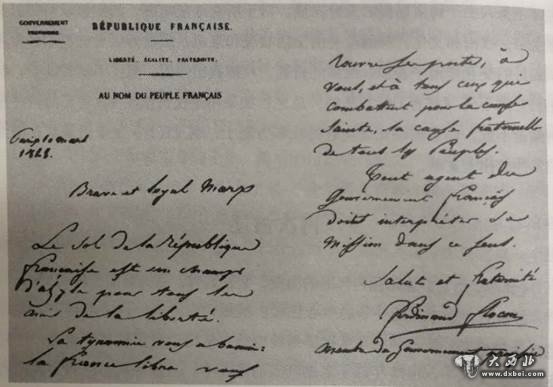 GOUVERNEMENT
PROVISOIRE
RÉPUBLIQUE FRANÇAISE.
LIBERTÉ, ÉGALITÉ, FRATERNITÉ.
AU NOM DU PEUPLE FRANÇAIS
Paris 10 mars
1848.
Brave et loyal Marx
Le sol de la république
française est un champ
d'asyle pour tous les
amis de la liberté.
La tyrannie vous a banni:
la France libre vous
rouvre ses portes, à
vous, et à tous ceux qui
combattent pour la cause
Sainte, la cause fraternelle
de tous les Peuples.
Tout agent du
Gouvernement français
doit interpréter sa
mission dans ce sens.
Salut et fraternité
Ferdinand Flocon
membre du Gouvernement provisoire
大西北
www.dxbei.com